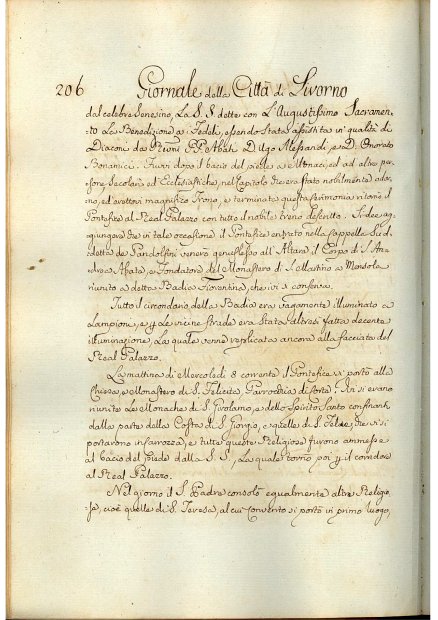 206 Giornale della Città di Livorno
dal celebre Senesino, La S. S. dette con L'Augustissimo Sacramen-
to La Benedizione a' Fedeli, essendo Stata assistita in qualità di
Diaconi da Reveni PP. Abati D. Ugo Alessandi, e D. Onorato
Bonamici. Furvi dopo il bacio del piede a' Monaci, ed ad altre per-
sone Secolari ed Ecclesiastiche, nel Capitolo che era stato nobilmente ador-
no, ed erettovi magnifico Trono, e terminata questa cerimonia ritornò il
Pontefice al Real Palazzo con tutto il nobile treno descritto. Si dee ag-
giungere che in tale occasione il Pontefice entrato nella Cappella Sud-
detta de' Pandolfini venerò genuflesso all'Altare il Corpo di S. An-
drea Abate, e Fondatore del Monastero di S. Martino a Mensola
riunito a detta Badia Fiorentina, che ivi si conserva.
Tutto il circondario della Badia era vagamente illuminato a
Lampioni, e p. Le vicine strade era Stata altresì fatta decente
illuminazione, La quale venne replicata ancora alla facciata del
Real Palazzo.
La mattina di Mercoledì 8 corrente il Pontefice si portò alla
Chiesa, e Monastero di S. Felicita Parrocchia di Corte: Ivi si erano
riunite Le Monache di S. Girolamo, e dello Spirito Santo confinanti
dalla parte della Costa di S. Giorgio, e quelle di S. Felice, che vi si
portarono in Carrozza, e tutte queste Religiose furono ammesse
al bacio del piede dalla S. S., La quale tornò poi p. il corridore
al Real Palazzo.
Nel giorno il S. Padre consolò egualmente altre Religio-
se, cioè quelle di S. Teresa, al cui Convento si portò in primo luogo,